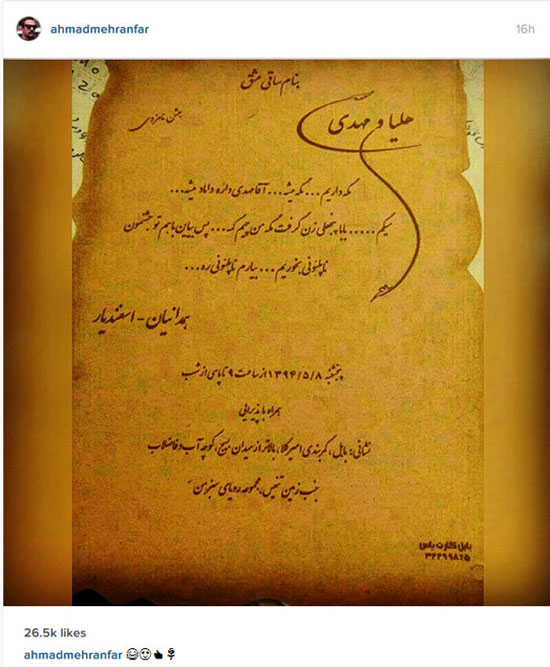 ahmadmehranfar
16h
بنام ساقی عشق
هلیا و مهدی
جشن نامزدی
مگه داریم ... مگه میشه ... آقا مهدی داره داماد میشه ...
میگم ..... بابا پنجعلی زن گرفت مگه من چیم که ... پس بیاین باهم تو جشنمون
ناپلئونی بخوریم ... بیارم ناپلئونی ره ...
همدانیان - اسفندیار
پنجشنبه ۱۳۹۴/۵/۸ از ساعت ۹ تا پاسی از شب
همراه با پذیرایی
نشانی: بابل، کمربندی امیرکلا، بالاتر از میدان بسیج، کوچه آب و فاضلاب
جنب زمین تنیس، مجموعه رویای سبز من
بابل کارت یاس
۳۲۲۹۹۸۱۵
26.5k likes
ahmadmehranfar 😂🙄👍🌹